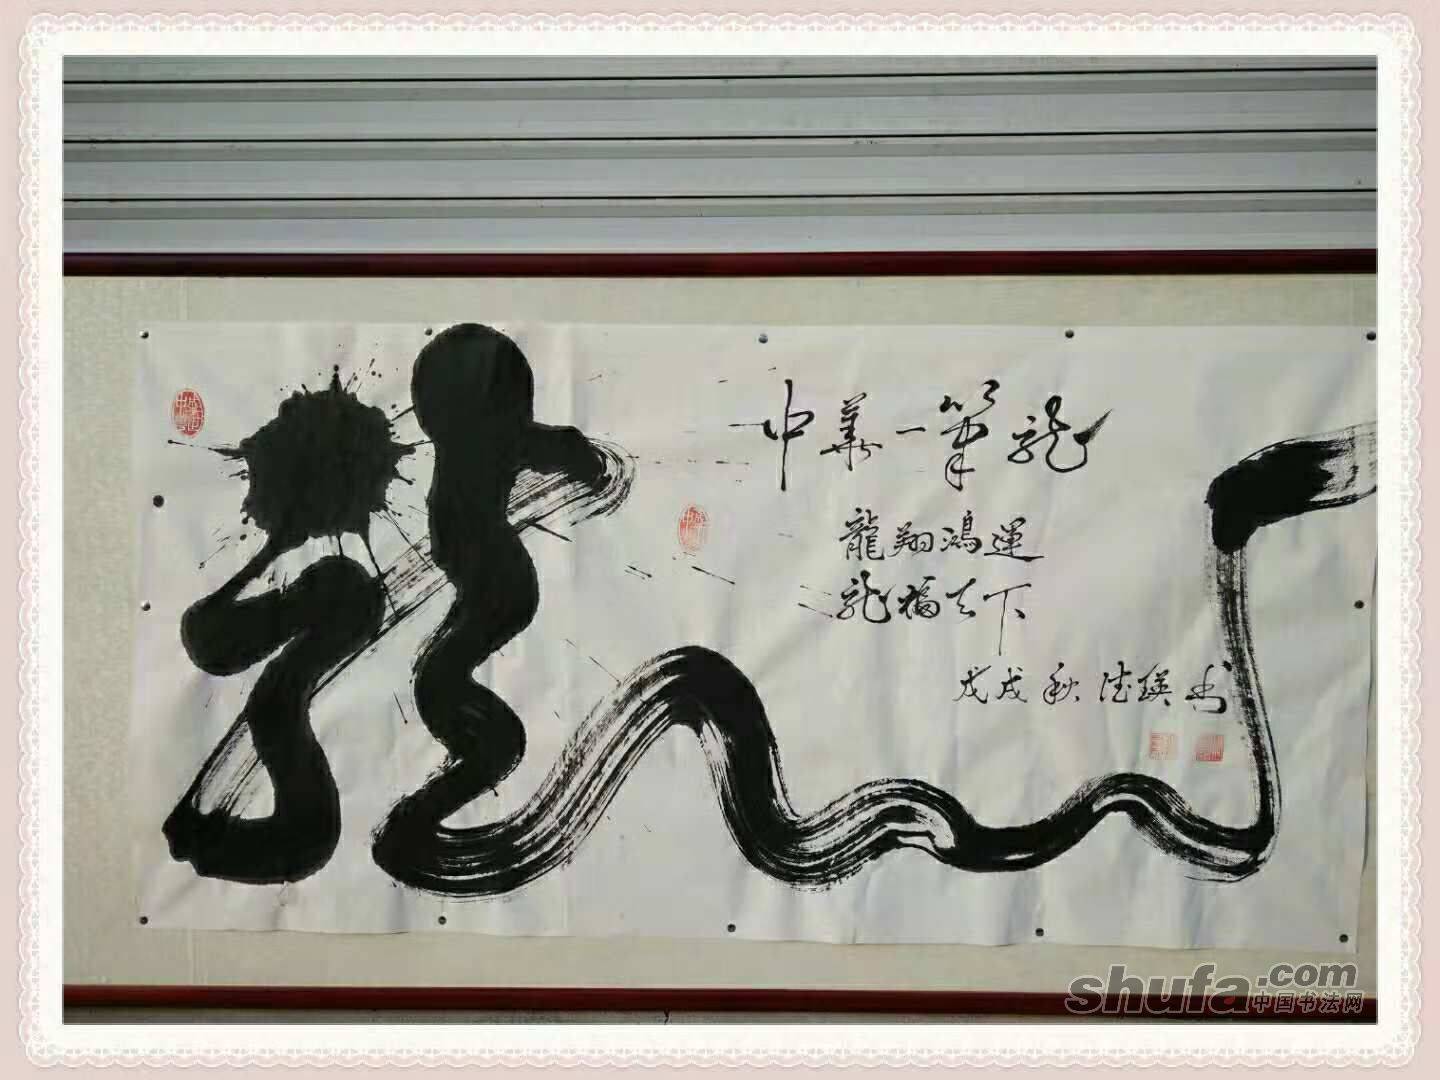 龙
中華一筆龙
龍翔鴻運
龙福天下
戊戌秋 德瑛书
shufa.com
中国书法网